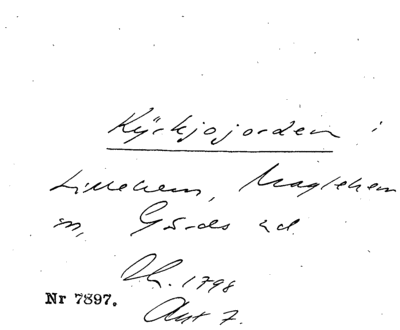 Kyrkjojorden i
Lillehem, Maglehem
sn, Gärds hd.
Lh. 1798
Nr 7897.
Akt 7.